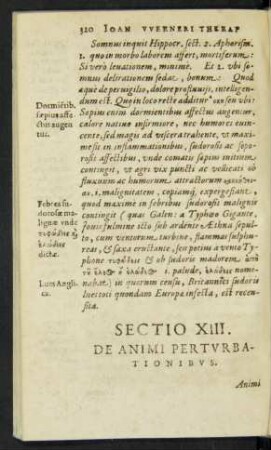 320 IOAN VVERNERI THERAP
Somnus inquit Hippocr. sect. 2. Aphorism.
1. quo in morbo laborem affert, mortiferum:
Si verò levationem, minimè. Et 2. vbi somnus delirationem sedat, bonum: Quod
aquè de pervigilio, dolore profluuijs, intelligendum est. Quo in loco rectè additur
Sopim cum dormientibus affectus augentur,
calore nativo infirmiore, nec humores concoquente, sed magis ad viscera trahente, vt maximè
mes in inflammationibus, sudorosis ac soporosis affectibus, vnde comatis sapius initium
contingit, vt agre vix puncti ac vellicati ob
fluxionem ac humorum attractorum
i. malignitatem, copiamq́, expergefiant,
quod maxime in febribus sudorosis malignis
contingit (quas Galen: a Typhœo Gigante,
Iovis fulmine icto sub ardente Æthna sepulto, cum ventorum turbine, flammas sulphureas, & saxa eructante, seu potius a vento Typhone
& ob sudoris madorem,
i. palude,
nabat) in quorum censu, Britannicus sudoris
quondam Europa infecta, est recensita.
SECTIO XIII.
DE ANIMI PERTVRBATIONIBVS.
Animi
Dormientib.
affectus augentur.
Febres sudorosæ malignæ unde
dictæ.
Lues Anglica.